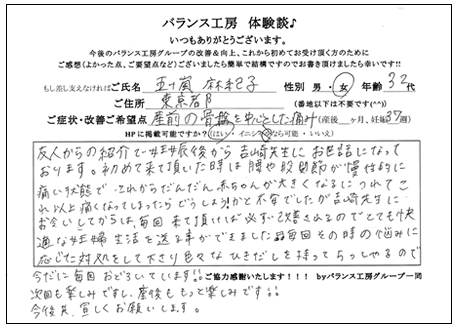 バランス工房 体験談♪
いつもありがとうございます。
今後のバランス工房グループの改善&向上、これから初めてお受け頂く方のために
ご感想(よかった点、ご要望点など)ございましたら簡単で結構ですのでお書き頂けましたら幸いです!!
もし差し支えなければご氏名 五十嵐 麻紀子 性別 男・女 年齢 32代
ご住所 東京都 (番地以下は不要です(^^))
ご症状・改善ご希望点 産前の骨盤を中心とした痛み (産後 ヶ月、妊娠37週)
HPに掲載可能ですか?(はい・イニシャルなら可能・いいえ)
友人からの紹介で妊娠後から吉崎先生にお世話になって
おります。初めて来て頂いた時は腰や股関節が慢性的に
痛い状態で、それからだんだん赤ちゃんが大きくなるにつれてこ
れ以上痛くなってしまったらどうしようかと不安でしたが吉崎先生に
お会いしてからは、毎回来て頂けば必ず改善されるのでとても快
適な妊婦生活を送る事ができました。毎回その時の悩みに
応じた対処をして下さり色々なひきだしを持ってらっしゃるので
今だに毎回おどろいています!! ご協力感謝いたします!!! byバランス工房グループ一同
次回も楽しみですし、産後ももっと楽しみです!!
今後共、宜しくお願いします。